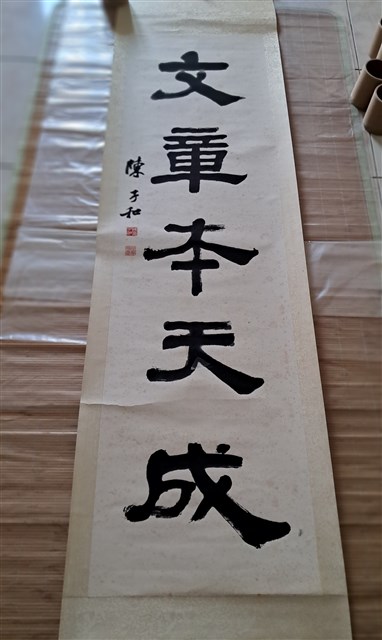 文章本天成
陳予和